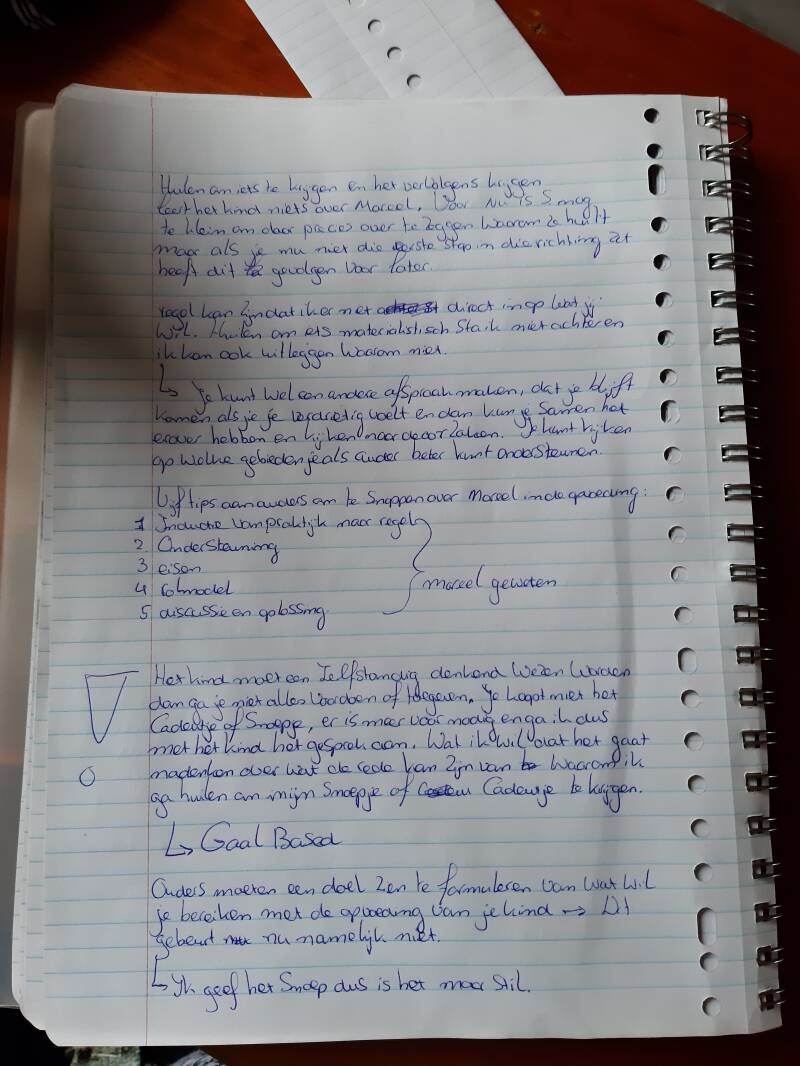 Huilen om iets te krijgen en het vervolgens krijgen
leert het kind niets over Moreel. Voor nu is S nog
te klein om daar precies over te zeggen waarom ze huilt
maar als je nu niet die eerste stap in die richting zet
heeft dit gevolgen voor later.
regel kan zijn dat ik er niet direct in op wat jij
wil. Huilen om iets materialistisch sta ik niet achter en
ik kan ook uitleggen waarom niet.
↳ Je kunt wel een andere afspraak maken, dat je blijft
komen als je je verdrietig voelt en dan kun je samen het
erover hebben en kijken naar de oorzaken. Je kunt kijken
op welke gebieden je als ouder beter kunt ondersteunen.
Vijf tips aan ouders om te snappen over Moreel in de opvoeding:
1 Inductie van praktijk naar regel
2 Ondersteuning
3 eisen
4 rolmodel
moreel geweten
5 discussie en oplossing
Het kind moet een zelfstandig denkend wezen worden
dan ga je niet alles voordoen of toegeven. Je koopt niet het
Cadeutje of Snoepje, er is meer voor nodig en ga ik dus
met het kind het gesprek aan. Wat ik wil dat het gaat
nadenken over wat de rede kan zijn van waarom ik
ga huilen om mijn Snoepje of Cadeutje te krijgen.
↳ Goal Based
Ouders moeten een doel zien te formuleren van wat wil
je bereiken met de opvoeding van je kind → Dit
gebeurt nu namelijk niet.
↳ Ik geef het Snoep dus is het maar stil.